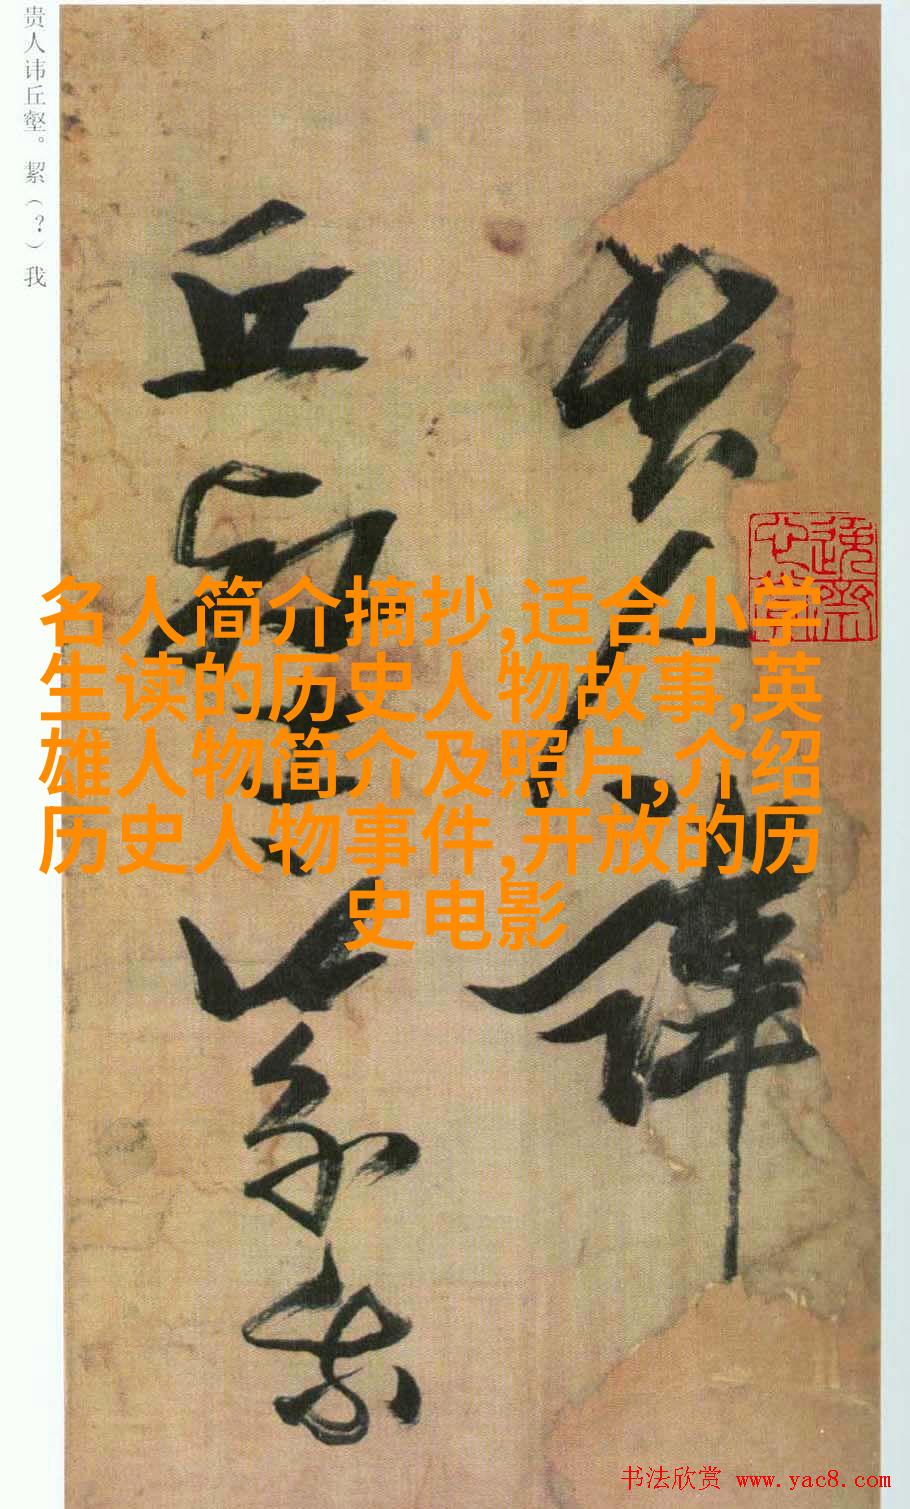 贵人讳丘壑。絜（？）我
贵人讳
丘壑絜我
名人简介摘抄,适合小学
生读的历史人物故事,英
雄人物简介及照片,介绍
历史人物事件,开放的历
史电影
书法欣赏 www.yac8.com